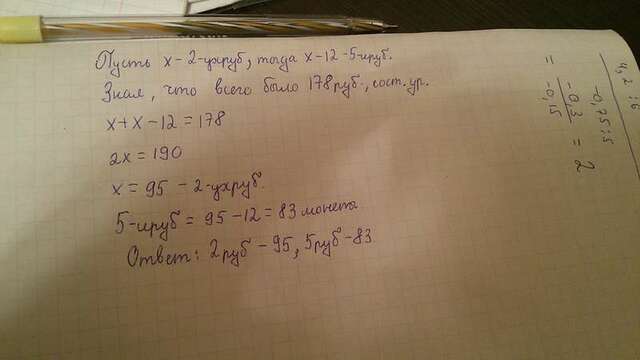 Пусть x - 2-ухруб, тогда x-12 - 5-ируб.
Зная, что всего было 178 руб, сост. ур.
x+x-12=178
2x=190
x=95 - 2-ухруб.
5-ируб = 95-12=83 монета
Ответ: 2руб-95, 5руб-83
4,2:6
-0,75:5
-0,3
-0,15
= 2
=